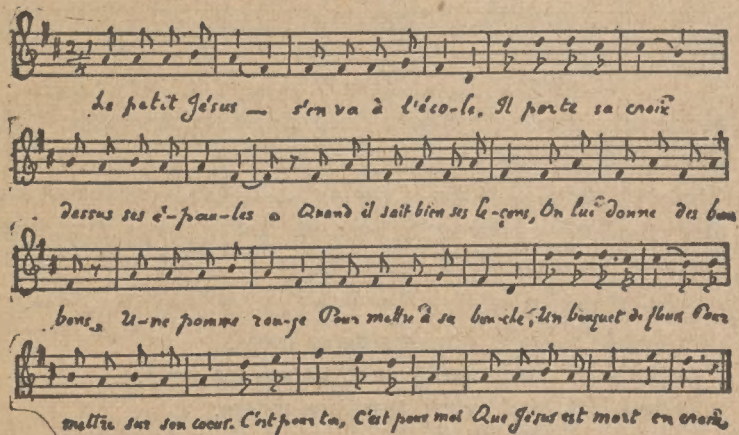 Le petit Jésus — s'en va à l'éco-le, Il porte sa croix
dessus ses é-pau-les. Quand il sait bien ses le-çons, On lui donne des bon
bons, U-ne pomme rou-ge Pour mettre à sa bou-che, Un bouquet de fleurs Pour
mettre sur son cœur. C'est pour toi, C'est pour moi Que Jésus est mort en croix.